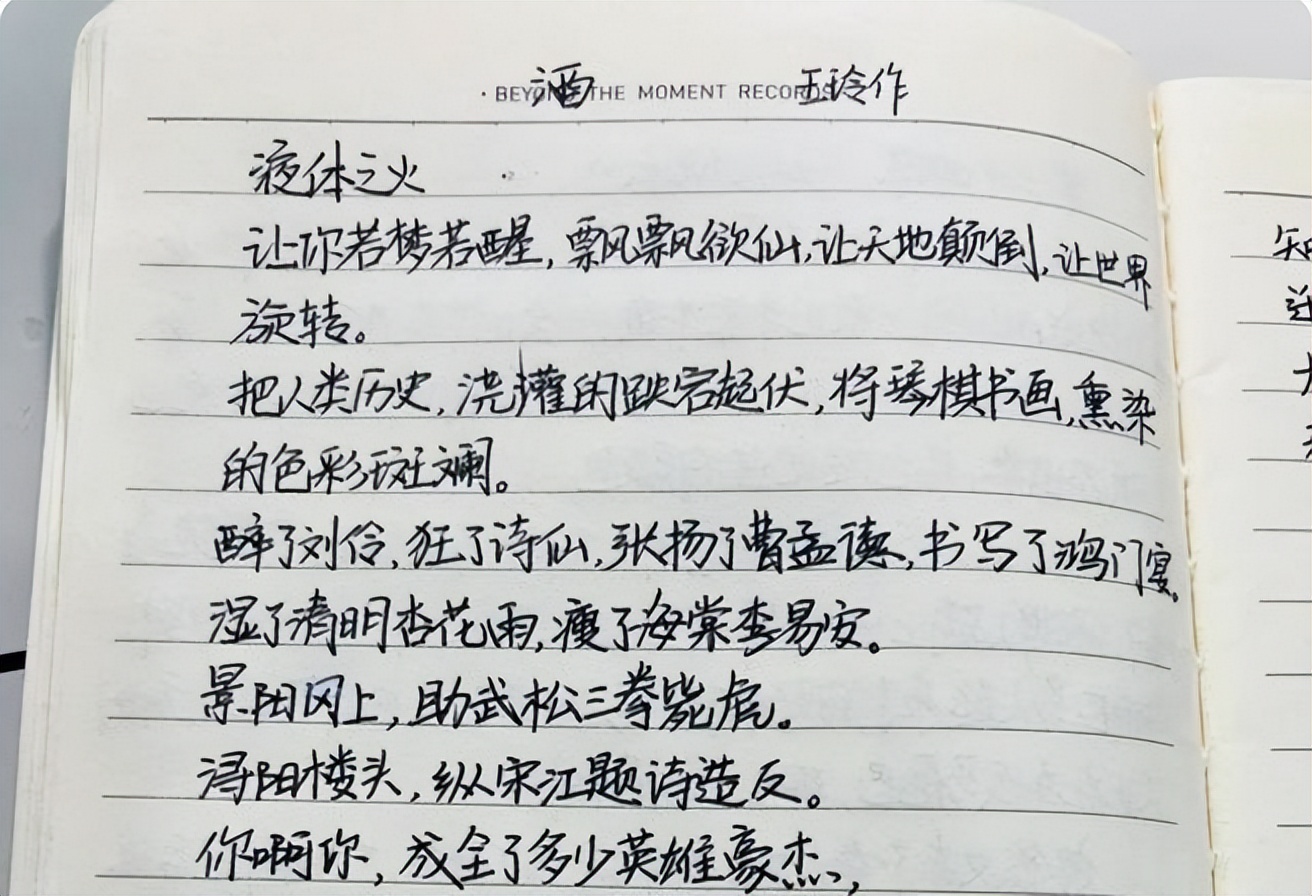 · BEYOND THE MOMENT RECORDS ·
酒 王玲作
液体之火
让你若梦若醒,飘飘欲仙,让天地颠倒,让世界
旋转。
把人类历史,浇灌的跌宕起伏,将琴棋书画,熏染
的色彩斑斓。
醉了刘伶,狂了诗仙,张扬了曹孟德,书写了鸿门宴。
湿了清明杏花雨,瘦了海棠李易安。
景阳冈上,助武松三拳毙虎。
浔阳楼头,纵宋江题诗造反。
你啊你,成全了多少英雄豪杰,